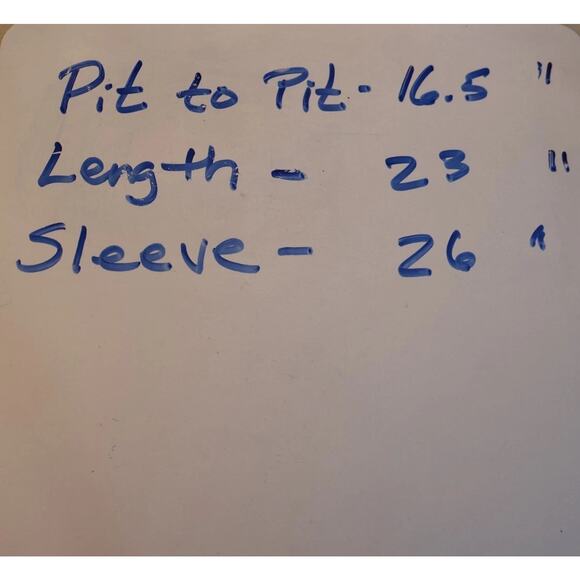 Pit to Pit - 16.5 "
Length - 23 "
Sleeve - 26 "